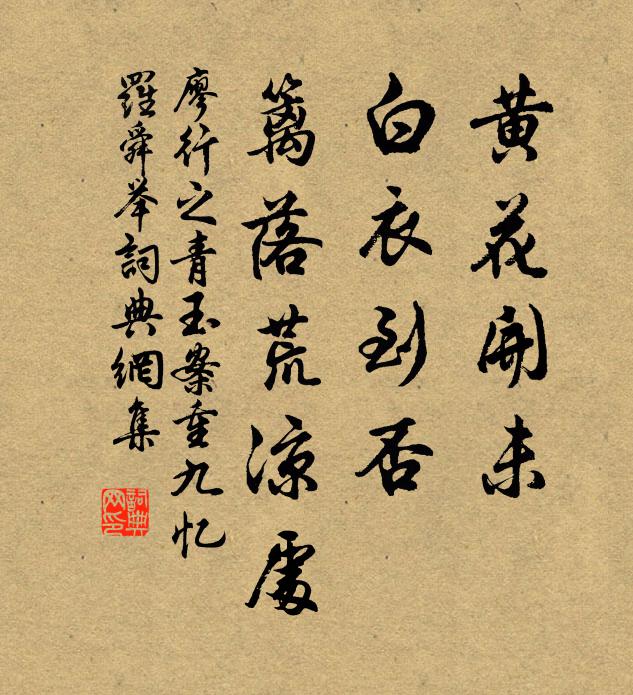 黄花開未
白衣到否
籬落荒涼處
廖行之青玉案重九忆
羅舜举詞典網集
詞典网印